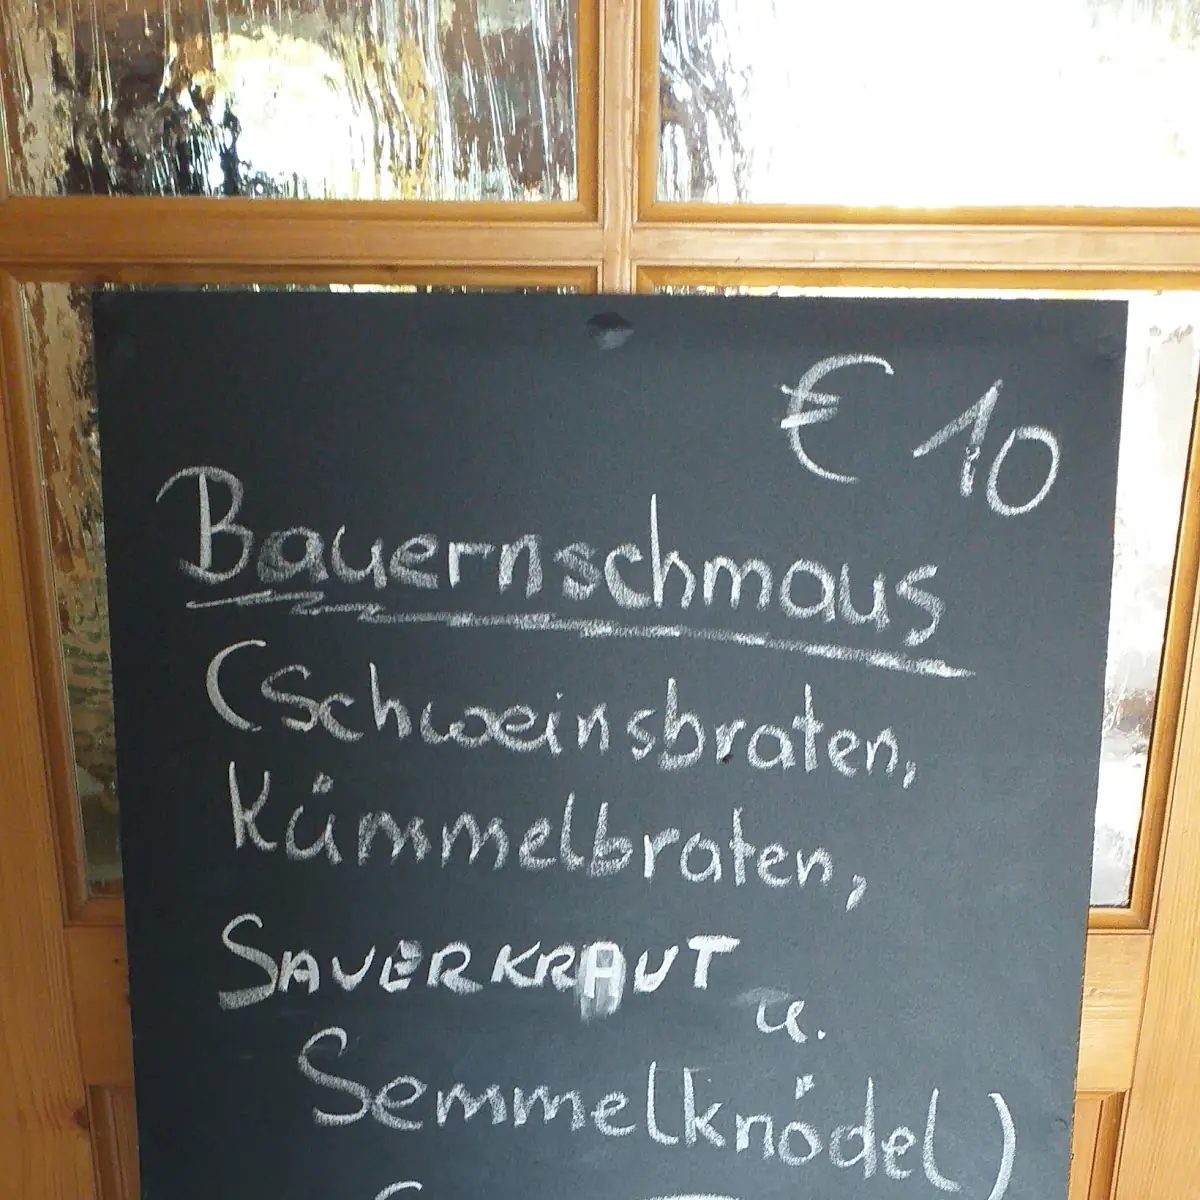 € 10
Bauernschmaus
(Schweinsbraten,
Kümmelbraten,
SAUERKRAUT
u.
Semmelknödel)